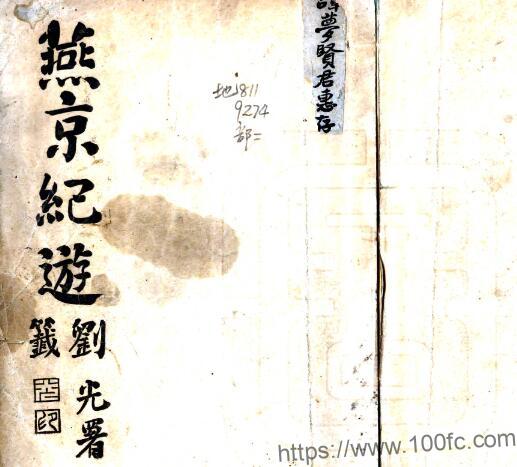 燕京紀遊
劉光署
籤
地811
9274
部二
夢賢君惠存
https://www.100fc.com